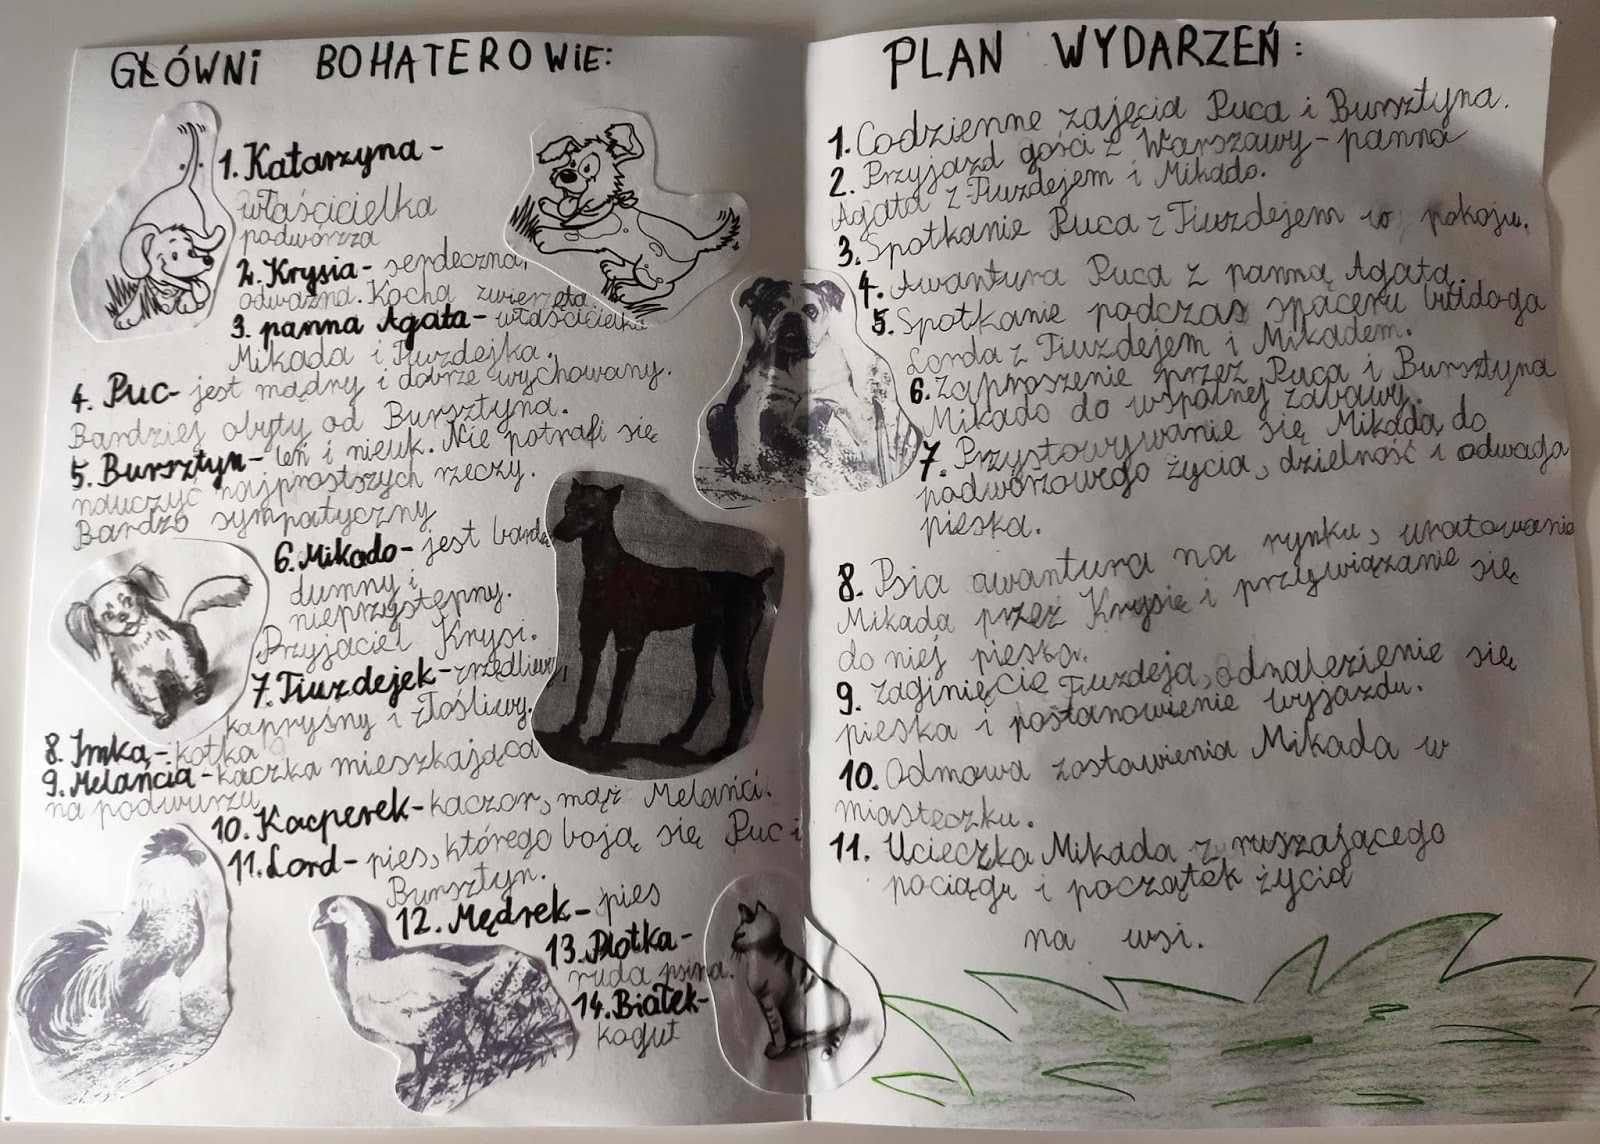 GŁÓWNI BOHATEROWIE:
1. Katarzyna -
właścicielka
podwórza
2. Krysia - serdeczna,
odważna. Kocha zwierzęta.
3. panna Agata - właścicielka
Mikada i Tiuzdejka.
4. Puc - jest mądry i dobrze wychowany.
Bardziej obyty od Bursztyna.
5. Bursztyn - leń i nieuk. Nie potrafi się
nauczyć najprostszych rzeczy.
Bardzo sympatyczny
6. Mikado - jest bardz
dumny i
nieprzystępny.
Przyjaciel Krysi.
7. Tiuzdejek - zrzędliwy,
kapryśny i złośliwy.
8. Imka - kotka
9. Melańcia - kaczka mieszkająca
na podwurzu
10. Kacperek - kaczor, mąż Melańci.
11. Lord - pies, którego boją się Puc i
Bursztyn.
12. Mędrek - pies
13. Plotka -
ruda psina.
14. Białek -
kogut
PLAN WYDARZEŃ:
1. Codzienne zajęcia Puca i Bursztyna.
2. Przyjazd gości z Warszawy - panna
Agata z Tiuzdejem i Mikado.
3. Spotkanie Puca z Tiuzdejem w pokoju.
4. Awantura Puca z panną Agatą.
5. Spotkanie podczas spaceru buldoga
Lorda z Tiuzdejem i Mikadem.
6. Zaproszenie przez Puca i Bursztyna
Mikado do wspólnej zabawy.
7. Przystowywanie się Mikada do
podwórzowego życia, dzielność i odwaga
pieska.
8. Psia awantura na rynku, uratowanie
Mikada przez Krysię i przywiązanie się
do niej pieska.
9. Zaginięcie Tiuzdeja, odnalezienie się
pieska i postanowienie wyjazdu.
10. Odmowa zostawienia Mikada w
miasteczku.
11. Ucieczka Mikada z ruszającego
pociągu i początek życia
na wsi.